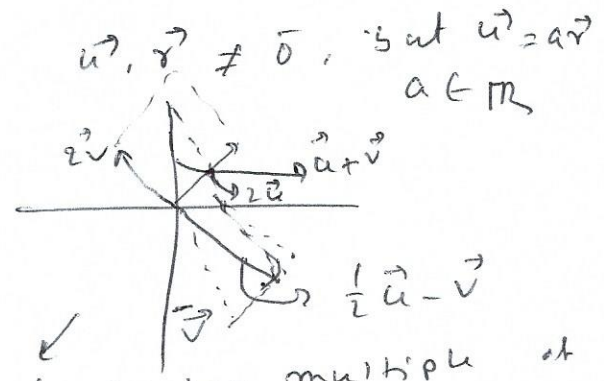 u⃗, v⃗ ≠ 0̄, but u⃗ = av⃗
a ∈ ℝ
2v⃗
u⃗ + v⃗
2u⃗
1/2 u⃗ - v⃗
v⃗
multiple of